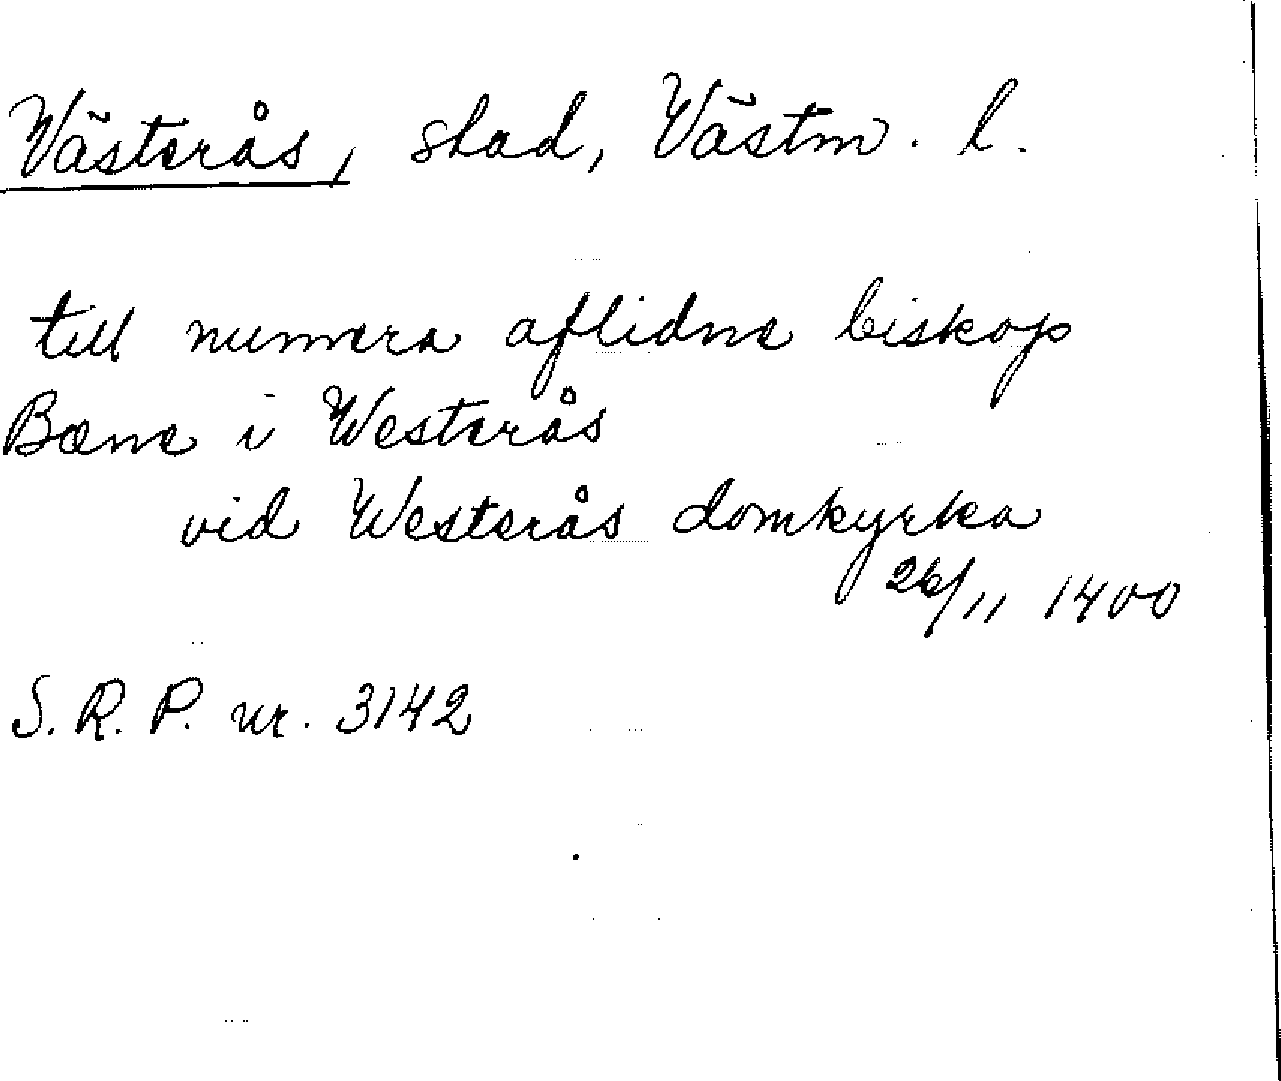 Västerås, stad, Västm. l.
till numera aflidne biskop
Bæne i Westerås
vid Westerås domkyrka
26/11 1400
S. R. P. nr. 3142